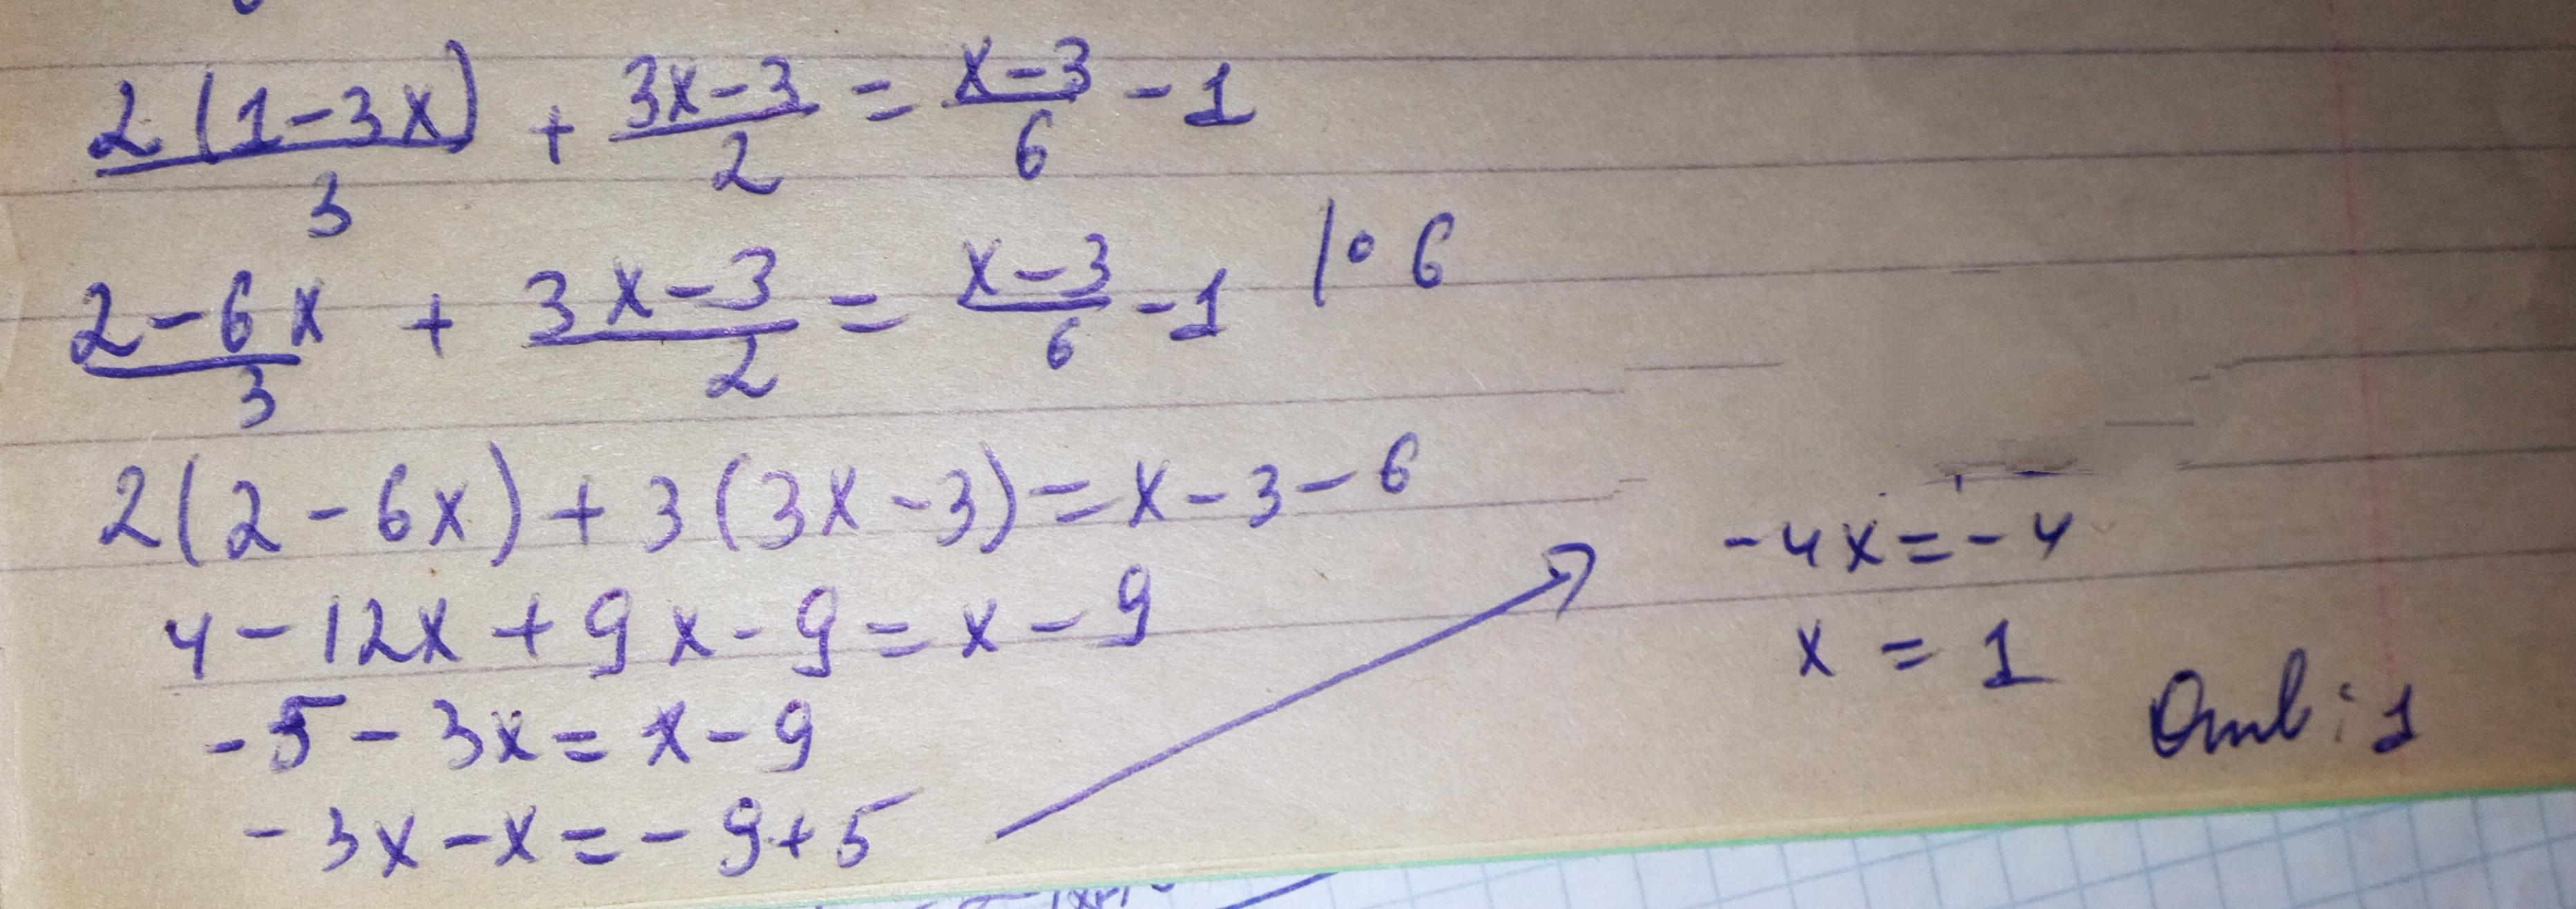 2(1-3x)/3 + 3x-3/2 = x-3/6 - 1
2-6x/3 + 3x-3/2 = x-3/6 - 1 |∘ 6
2(2-6x)+3(3x-3)=x-3-6
4-12x+9x-9=x-9
-5-3x=x-9
-3x-x=-9+5
-4x=-4
x = 1
Отв: 1